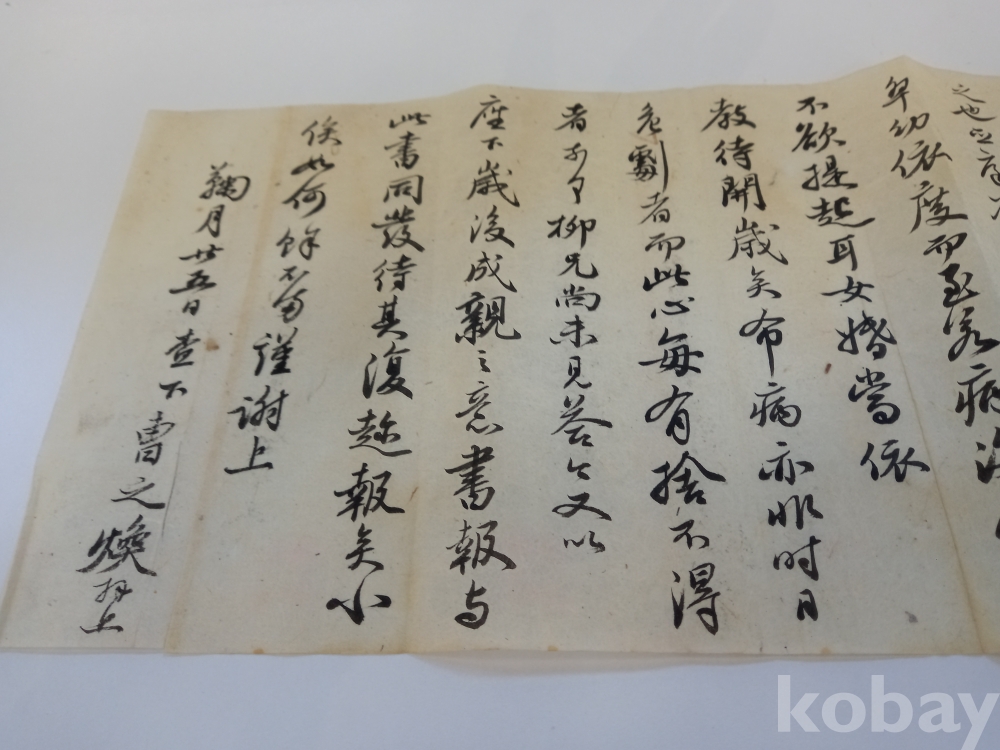 之也
卑幼依度而至若病
不欲提起耳女婚當依
教待開歲矣布病亦非时日
危劇者而此心每有捨不得
者 柳兄尚未見答今又以
座下歲後成親之意書報与
此書同發待其復趁報矣小
俟如何餘不備謹謝上
菊月廿五日查下曹之煥拜上
kobay